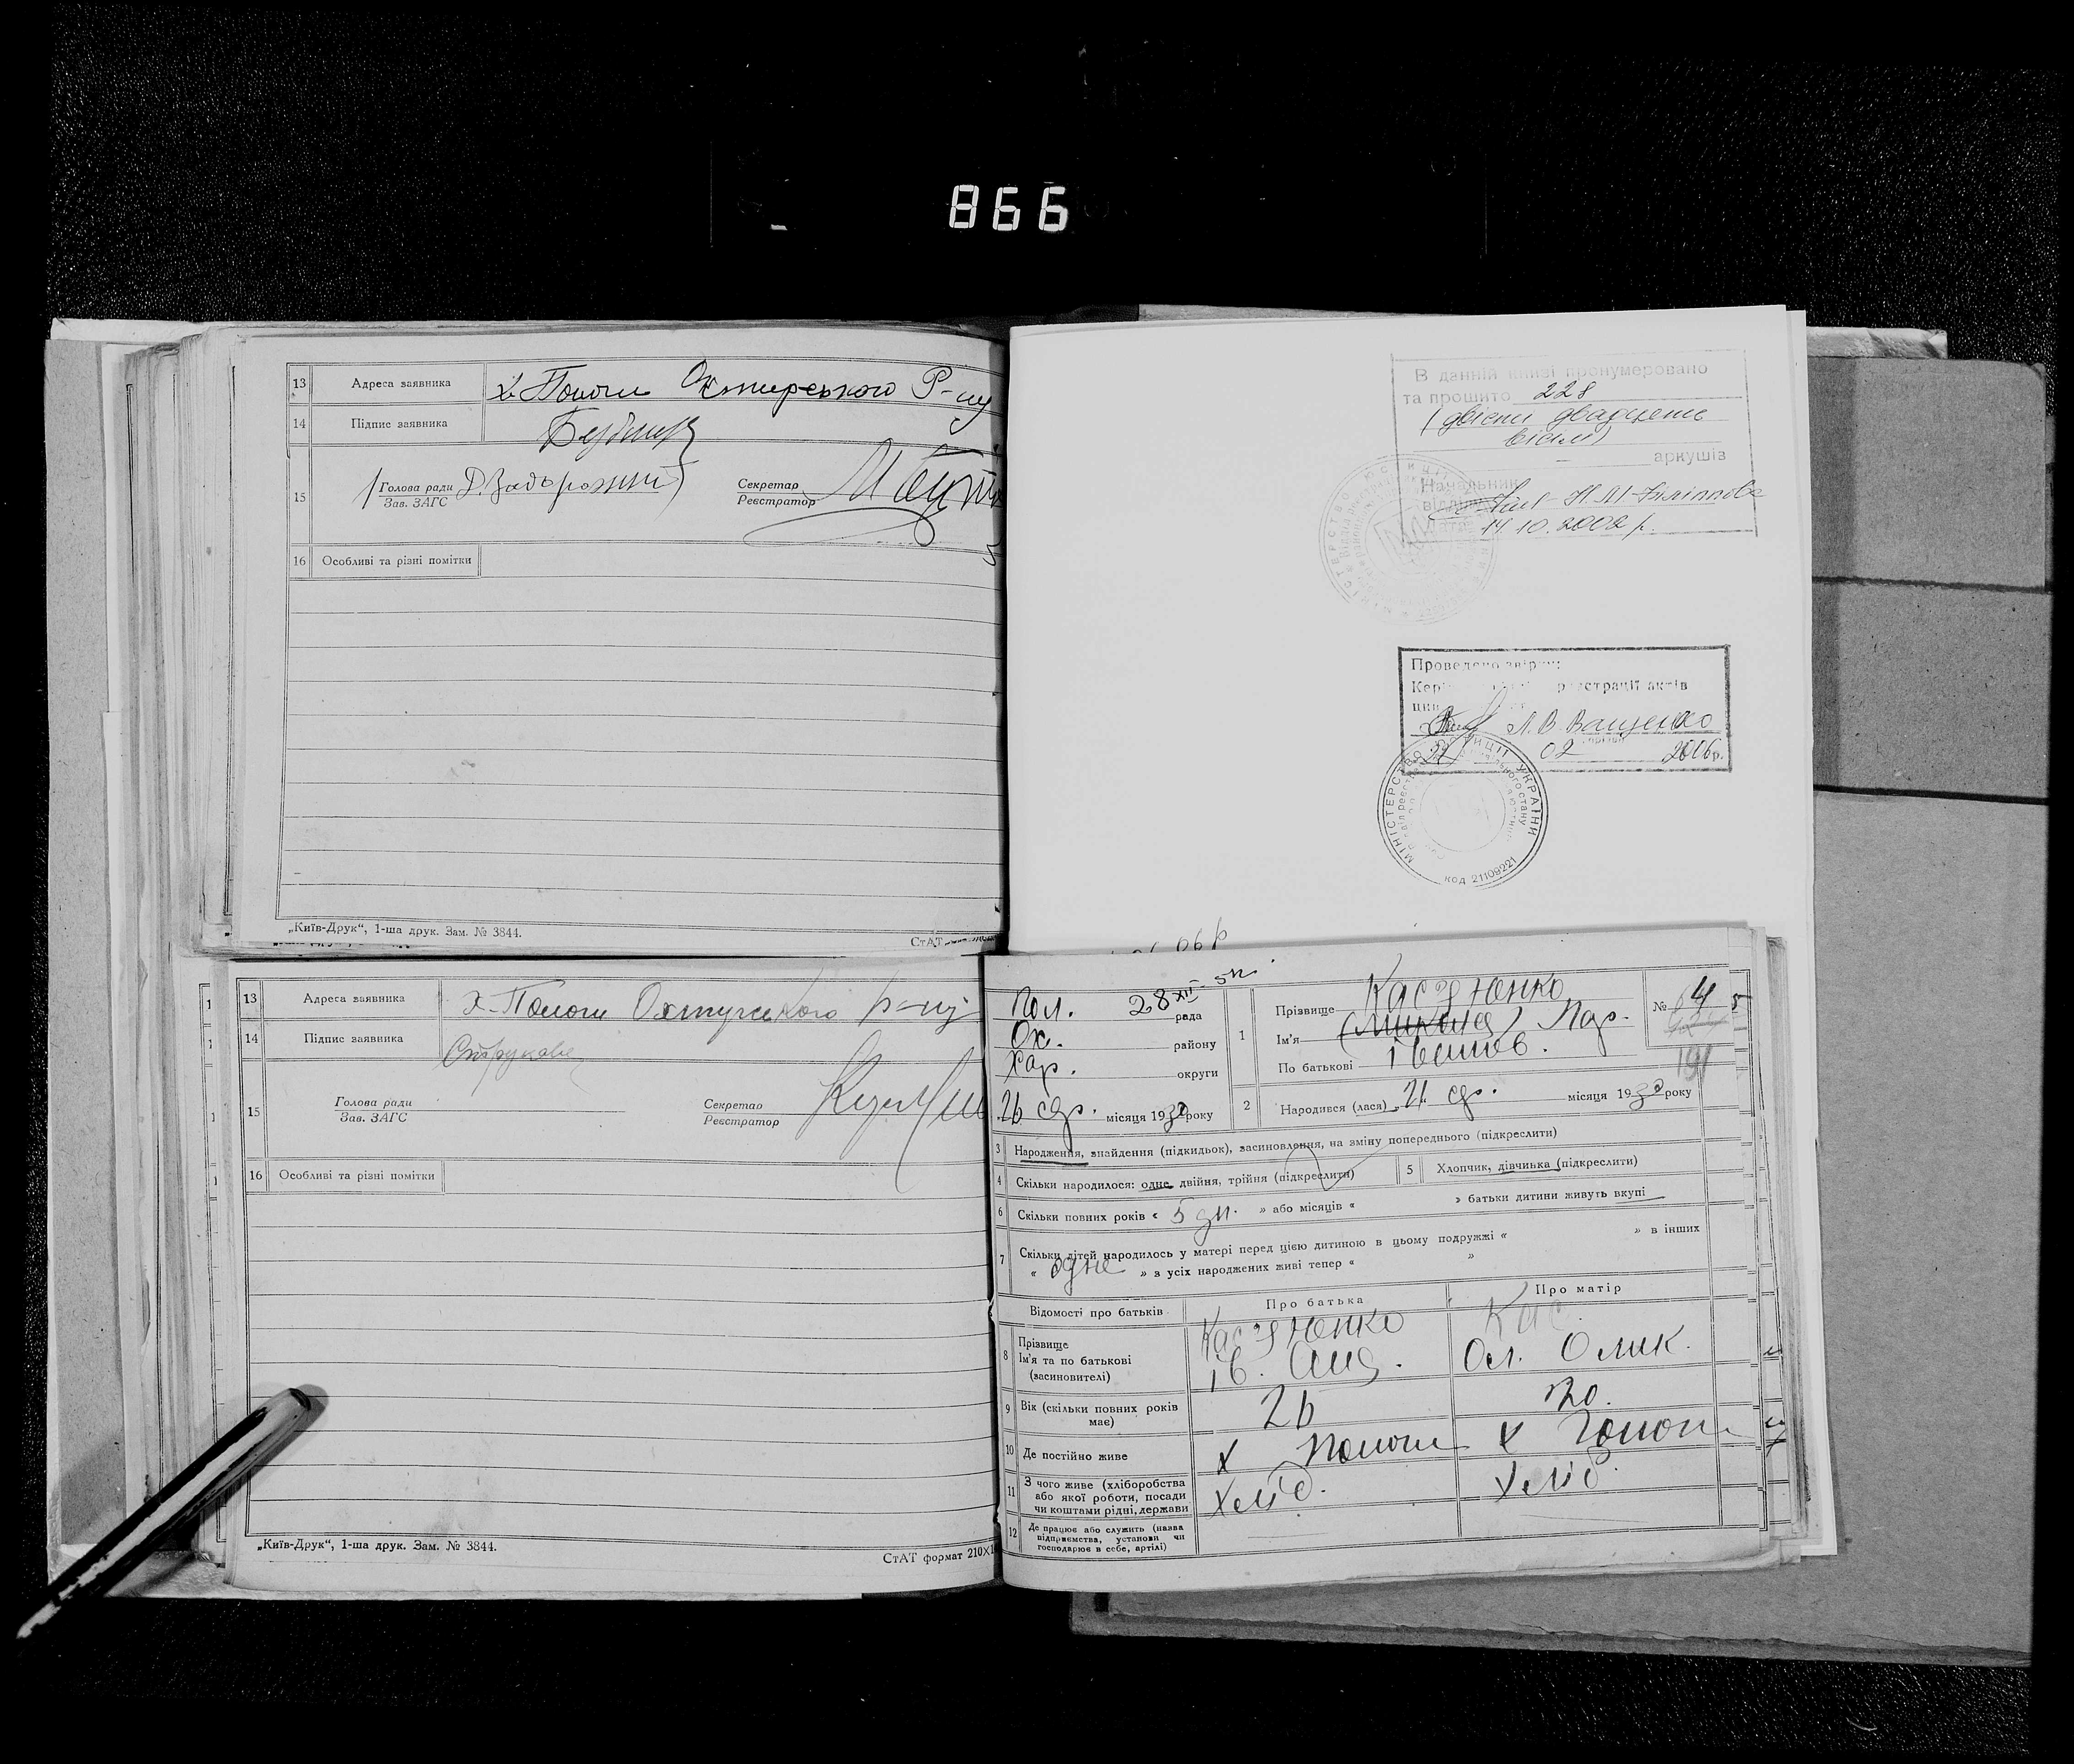 866
13 Адреса заявника х. Пологи Охтирського Р-ну
14 Підпис заявника
15 Голова ради Д. Задорожний Секретар
Зав. ЗАГС Реєстратор
16 Особливі та різні помітки
„Київ-Друк“, 1-ша друк. Зам. № 3844.
СтАТ
В данній книзі пронумеровано
та прошито 228
(двісти двадцять
вісім)
аркушів
Начальник
відділу Н.М. Філіппова
14.10.2002 р.
Проведено звірку:
реєстрації актів
Л.В. Ващенко
02 2006р.
МІНІСТЕРСТВО ЮСТИЦІЇ УКРАЇНИ
код 21109221
06р
13 Адреса заявника х. Пологи Охтирського р-ну
14 Підпис заявника
15 Голова ради Секретар
Зав. ЗАГС Реєстратор
16 Особливі та різні помітки
„Київ-Друк“, 1-ша друк. Зам. № 3844.
СтАТ формат 210×1
Пол. 28 XII рада
Ох. району
Хар. округи
26 сер. місяця 1930 року
1 Прізвище Касяненко
Ім'я
По батькові Іванов.
№ 4
191
2 Народився (лася) „21“ сер. місяця 1930 року
3 Народження, знайдення (підкидьок), засиновлення, на зміну попереднього (підкреслити)
4 Скільки народилося: одне, двійня, трійня (підкреслити)
5 Хлопчик, дівчинка (підкреслити)
6 Скільки повних років « 5 дн. » або місяців « » батьки дитини живуть вкупі
7 Скільки дітей народилось у матері перед цією дитиною в цьому подружжі « » в інших
« одне » з усіх народжених живі тепер « »
Відомості про батьків Про батька Про матір
8 Прізвище Касяненко Кас.
Ім'я та по батькові Ів. Анд. Ол. Олик.
(засиновителі)
9 Вік (скільки повних років має) 26 20.
10 Де постійно живе х Пологи х Пологи
11 З чого живе (хліборобства Хлiб. Хлiб.
або якої роботи, посади
чи коштами рідні, держави
12 Де працює або служить (назва
підприємства, установи чи
господарює в себе, артілі)